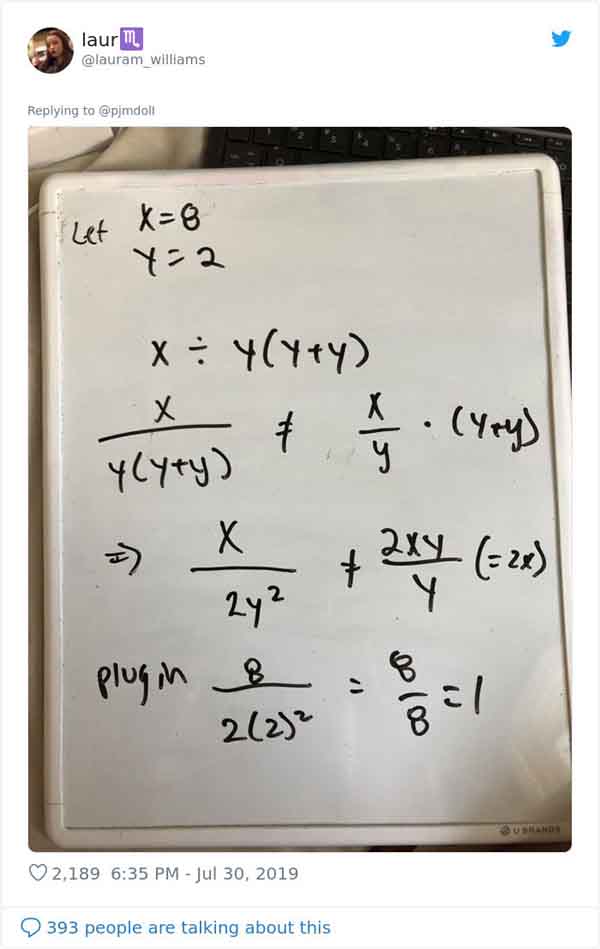 laur♏
@lauram_williams
Replying to @pjmdoll
Let x=8
y=2
x ÷ y(y+y)
x/y(y+y) ≠ x/y · (y+y)
=> x/2y² ≠ 2xy/y (=2x)
plug in 8/2(2)² = 8/8 = 1
U BRANDS
2,189 6:35 PM - Jul 30, 2019
393 people are talking about this